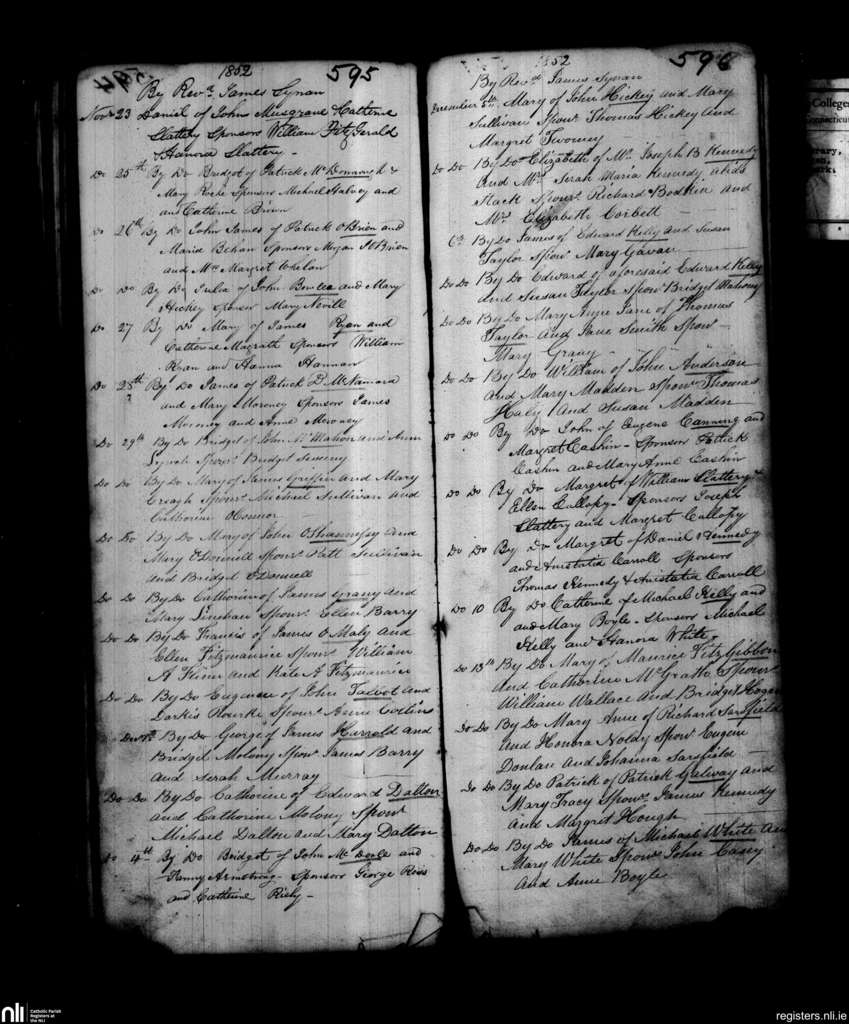 1852 595
By Revd. James Synan
Novr 23 Daniel of John Musgrave Catherine
Slattery Sponsors William FitzGerald
Hanora Slattery -
Do 25th By Do Bridget of Patrick Mc Donnough &
Mary Roche Sponsors Michael Halvey and
and Catherine Brown
Do 26th By Do John James of Patrick O'Brien and
Maria Behan Sponsors OBrien
and Mrs Margret Whelan
Do Do By Do Julia of John and Mary
Hickey Sponsor Mary Nevill
Do 27 By Do Mary of James Ryan and
Catherine Magrath Sponsors William
Ryan and Hanna Hannan
Do 28th By Do James of Patrick McNamara
and Mary Moroney Sponsors James
Moroney and Anne Moroney
Do 29th By Do Bridget of John McMahon and Anne
Sponr. Bridget Sweeny
Do Do By Do Mary of James Griffin and Mary
Creagh Sponr. Michael Sullivan and
Catherine OConnor
Do Do By Do Mary of John OShaunessy and
Mary O'Donnell Sponr. Patt Sullivan
and Bridget ODonnell
Do Do By Do Catherine of James Grany and
Mary Linehan Sponr. Ellen Barry
Do Do By Do Francis of James O Maly and
Ellen Fitzmaurice Sponr. William
and Kate A Fitzmaurice
Do Do By Do Eugene of John Talbot and
Rourke Sponr. Anne Collins
By Do George of James Harrold and
Bridget Molony Sponr. James Barry
and Serah Murray
Do Do By Do Catherine of Edward Dalton
and Catherine Molony Sponr.
Michael Dalton and Mary Dalton
Do 4th By Do Bridget of John Mc and
Fanny Armstrong - Sponsors George Ross
and Catherine Riely -
1852 596
By Revd. James Synan
December 5th Mary of John Hickey and Mary
Sullivan Sponr. Thomas Hickey and
Margret Twomey
Do Do By Do Elizabeth of Mr. Joseph B Kennedy
and Mrs. Serah Maria Kennedy alias
Stack Sponrs. Richard Bodkin and
Mrs. Elizabeth Corbett
By Do James of Edward Kelly and Susan
Taylor Sponr. Mary Gavan
Do Do By Do Edward of aforesaid Edward Kelly
and Susan Taylor Sponr Bridget Mahony
Do Do By Do Mary Anne Jane of Thomas
Taylor and Jane Smith Sponr
Mary Grany -
Do Do By Do William of John Anderson
and Mary Madden Sponrs Thomas
Haly and Susan Madden
Do Do By Do John of Eugene Canning and
Margret Cashin - Sponsors Patrick
Cashin and Mary Anne Cashin
Do Do By Do Margret of William Slattery &
Ellen Cullopy - Sponsors Joseph
Slattery and Margret Cullopy
Do Do By Do Margret of Daniel Kennedy
and Anistatia Carroll Sponsors
Thomas Kennedy & Anistatia Carroll
Do 10 By Do Catherine of Michael Kelly and
and Mary Boyle - Sponsors Michael
Kelly and Hanora White
Do 13th By Do Mary of Maurice FitzGibbon
and Catherine McGrath Sponrs
William Wallace and Bridget Hogan
Do Do By Do Mary Anne of Richard Sarsfield
and Honora Sponr Eugene
Donlan and Johanna Sarsfield
Do Do By Do Patrick of Patrick Galway and
Mary Tracy Sponr. James Kennedy
and Margret Hough
Do Do By Do James of Michael White and
Mary White Sponr. John Casey
and Anne Boyle
nli
Catholic Parish
Registers at
the NLI
registers.nli.ie